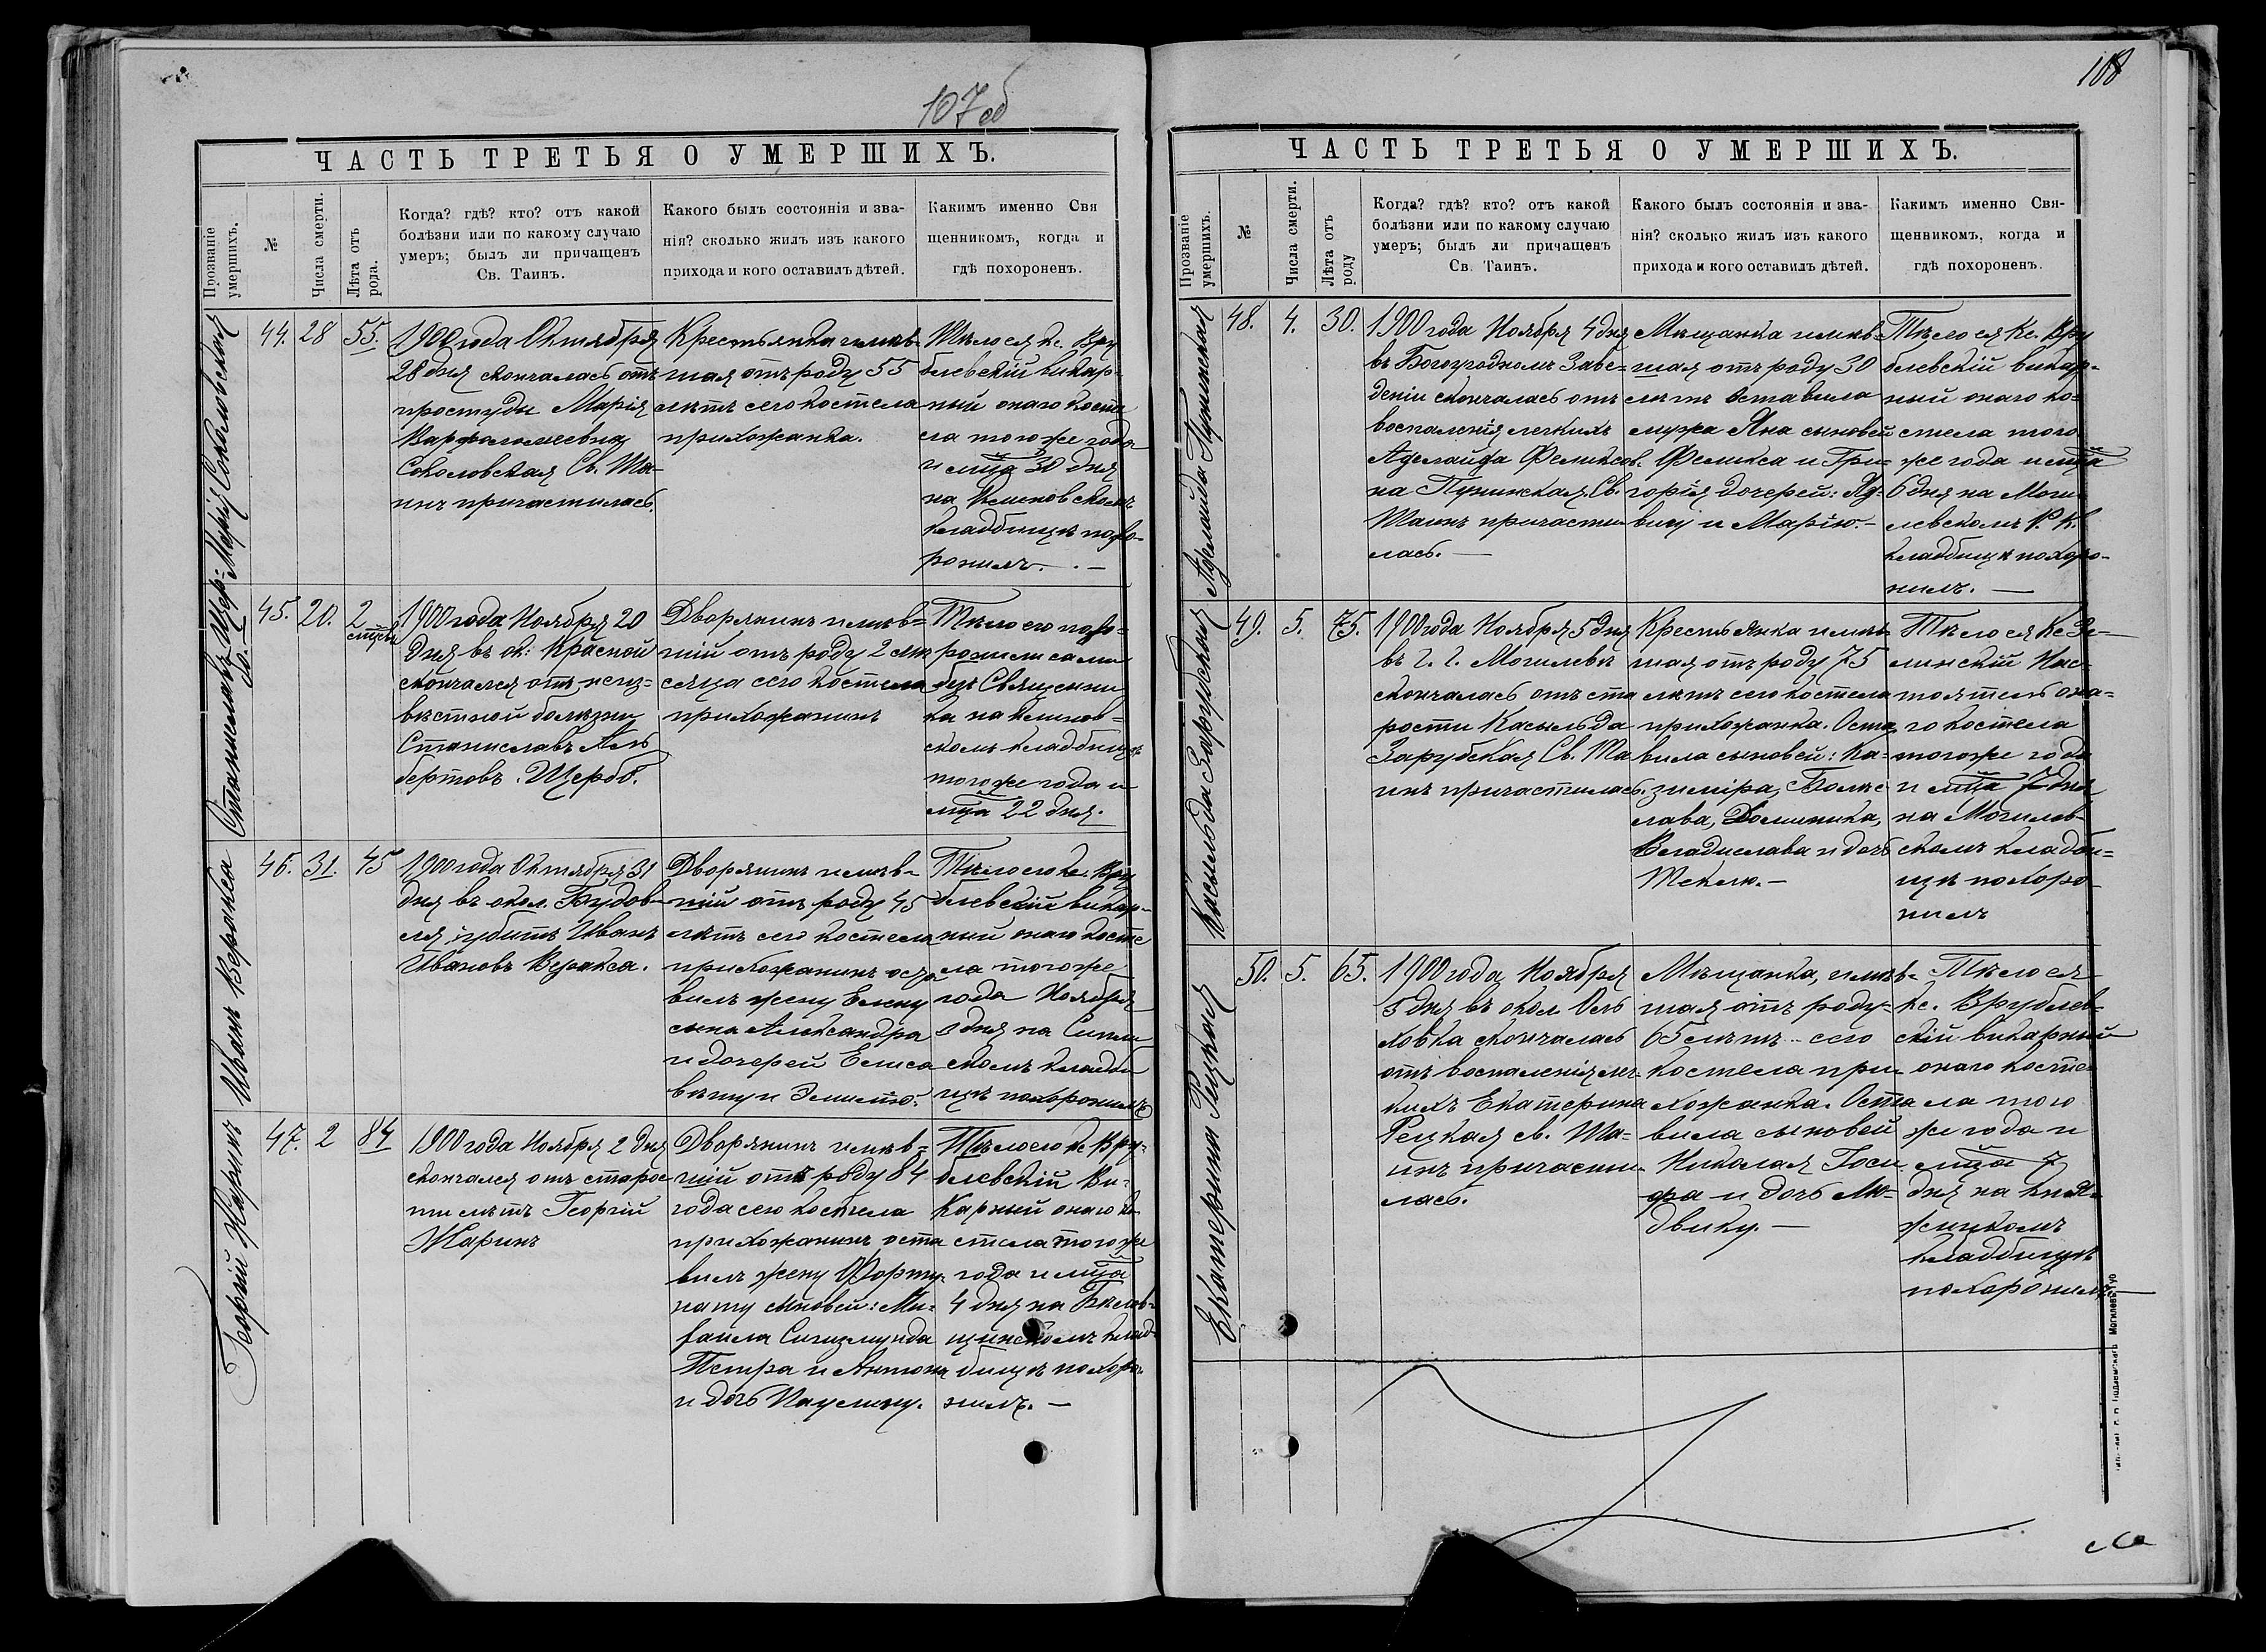 107 об
ЧАСТЬ ТРЕТЬЯ О УМЕРШИХЪ.
Прозваніе умершихъ.
№
Числа смерти.
Лѣта отъ рода.
Когда? гдѣ? кто? отъ какой
болѣзни или по какому случаю
умеръ; былъ ли причащенъ
Св. Таинъ.
Какого былъ состоянія и зва-
нія? сколько жилъ изъ какого
прихода и кого оставилъ дѣтей.
Какимъ именно Свя
щенникомъ, когда и
гдѣ похороненъ.
Марія Соколовская
44.
28
55.
1900 года Октября
28 дня скончалась отъ
простуды Марія
Варфоломеевна
Соколовская Св. Та-
инъ причастилась.
Крестьянка имѣв-
шая отъ роду 55
лѣтъ сего костела
прихожанка.
Тѣло ея Кс. Вру
блевскій викар-
ный онаго косте
ла того же года
и мца 30 дня
на
кладбищѣ похо-
ронилъ. —
Станиславъ Щер-
бо.
45.
20.
2
1900 года Ноября 20
дня въ ок: Красной
скончался отъ неиз-
вѣстной болѣзни
Станиславъ Аль
бертовъ Щербо.
Дворянинъ имѣв-
шій отъ роду 2 мѣ
сяца сего костела
прихожанинъ
Тѣло его похо-
ронили сами
безъ Священни
ка на
скомъ кладбищѣ
того же года и
мца 22 дня.
Иванъ Веракса
46.
31.
45
1900 года Октября 31
дня въ окол. Будов-
ля убитъ Иванъ
Ивановъ Веракса.
Дворянинъ имѣв-
шій отъ роду 45
лѣтъ сего костела
прихожанинъ оста
вилъ жену Елену
сына Александра
и дочерей Елиса
вету и Эмилію.
Тѣло его Кс. Вру
блевскій викар-
ный онаго косте
ла того же
года Ноября
3 дня на
скомъ кладби
щѣ похоронилъ
Георгій Жаринъ
47.
2
84
1900 года Ноября 2 дня
скончался отъ старос
ти лѣтъ Георгій
Жаринъ
Дворянинъ имѣв-
шій отъ роду 84
года сего костела
прихожанинъ оста
вилъ жену Форту-
нату сыновей: Ми-
хаила Сигизмунда
Петра и Антона
и дочь Паулину.
Тѣло его Кс Вру-
блевскій Ви-
карный онаго ко
стела того же
года и мца
4 дня на
клад
бищѣ похоро-
нилъ. —
108
ЧАСТЬ ТРЕТЬЯ О УМЕРШИХЪ.
Прозваніе умершихъ.
№
Числа смерти.
Лѣта отъ роду
Когда? гдѣ? кто? отъ какой
болѣзни или по какому случаю
умеръ; былъ ли причащенъ
Св. Таинъ.
Какого былъ состоянія и зва-
нія? сколько жилъ изъ какого
прихода и кого оставилъ дѣтей.
Какимъ именно Свя-
щенникомъ, когда и
гдѣ похороненъ.
Аделаида Пунинская
48.
4.
30.
1900 года Ноября 4 дня
въ Богоугодномъ Заве-
деніи скончалась отъ
воспаленія легкихъ
Аделаида Феликсов-
на Пунинская. Св.
Таинъ причасти-
лась. —
Мѣщанка имѣв-
шая отъ роду 30
лѣтъ оставила
мужа Яна сыновей
Феликса и Гри-
горія дочерей: Яд-
вигу и Марію. —
Тѣло ея Кс. Вру
блевскій викар-
ный онаго ко-
стела того
же года и мца
6 дня на Моги
левскомъ Р. К.
кладбищѣ похоро-
нилъ. —
Касильда Зарубская
49.
5.
75.
1900 года Ноября 5 дня
въ г. г. Могилевѣ
скончалась отъ ста
рости Касильда
Зарубская Св. Та
инъ причастилась.
Крестьянка имѣв
шая отъ роду 75
лѣтъ сего костела
прихожанка. Оста
вила сыновей: Ка-
зиміра, Болес
лава, Доминика,
Владислава и дочь
Теклю. —
Тѣло ея Кс Зе-
линскій Нас-
тоятель она-
го костела
того же года
и мца 7 дня
на Могилев-
скомъ кладби-
щѣ похоро-
нилъ
Екатерина Рецкая
50.
5.
65.
1900 года Ноября
5 дня въ окол Оль
ховка скончалась
отъ воспаленія лег-
кихъ Екатерина
Рецкая св. Та-
инъ причасти-
лась.
Мѣщанка, имѣв-
шая отъ роду
65 лѣтъ сего
костела при-
хожанка. Оста
вила сыновей
Николая Іоси
фа и дочь Лю-
двику. —
Тѣло ея
Кс. Врублев-
скій викарный
онаго косте
ла того
же года и
мца 7
дня на Кня-
жицкомъ
кладбищѣ
похоронилъ —